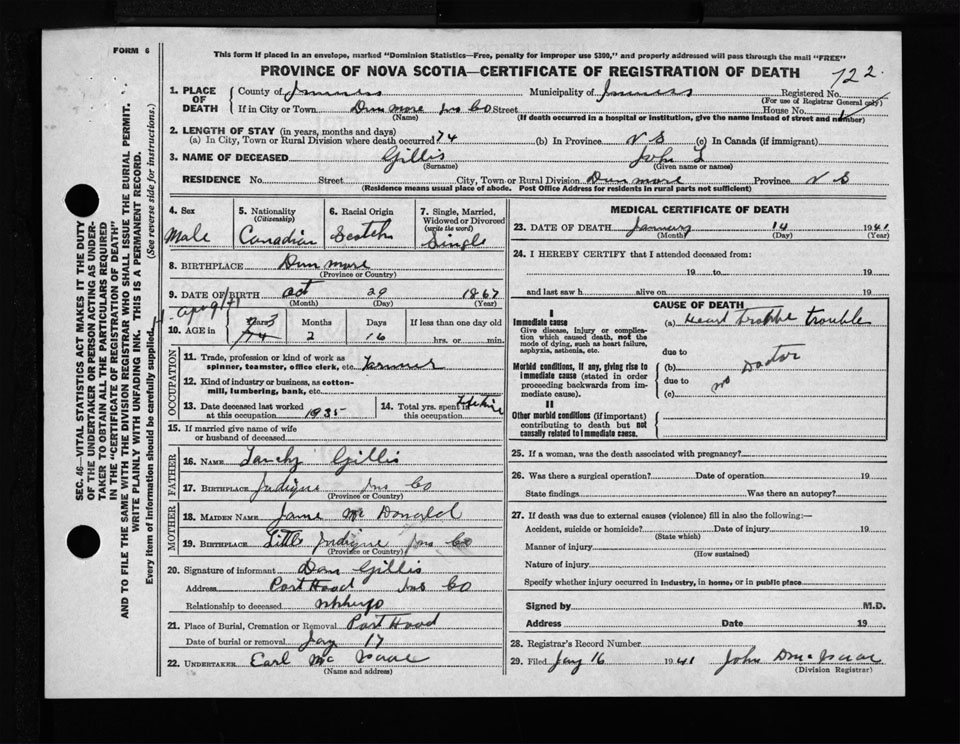 FORM 6
This form if placed in an envelope, marked "Dominion Statistics—Free, penalty for improper use $300," and properly addressed will pass through the mail "FREE"
PROVINCE OF NOVA SCOTIA—CERTIFICATE OF REGISTRATION OF DEATH
122
1. PLACE OF DEATH County of Inverness Municipality of Inverness Registered No.
(For use of Registrar General only)
If in City or Town Dunmore Inv Co Street House No.
(Name) (If death occurred in a hospital or institution, give the name instead of street and number)
2. LENGTH OF STAY (in years, months and days)
(a) In City, Town or Rural Division where death occurred 74 (b) In Province N S (c) In Canada (if immigrant)
3. NAME OF DECEASED Gillis John L
(Surname) (Given name or names)
RESIDENCE No. Street City, Town or Rural Division Dunmore Province N S
(Residence means usual place of abode. Post Office Address for residents in rural parts not sufficient)
4. Sex Male
5. Nationality (Citizenship) Canadian
6. Racial Origin Scotch
7. Single, Married, Widowed or Divorced (write the word) Single
8. BIRTHPLACE Dunmore
(Province or Country)
9. DATE OF BIRTH Oct 29 1867
(Month) (Day) (Year)
10. AGE in Years 74 3 Months 2 Days 16 If less than one day old hrs. or min.
OCCUPATION
11. Trade, profession or kind of work as spinner, teamster, office clerk, etc. Farmer
12. Kind of industry or business, as cotton-mill, lumbering, bank, etc.
13. Date deceased last worked at this occupation 1935
14. Total yrs. spent in this occupation
15. If married give name of wife or husband of deceased
FATHER
16. NAME Gillis
17. BIRTHPLACE Judique Inv Co
(Province or Country)
MOTHER
18. MAIDEN NAME McDonald
19. BIRTHPLACE Little Judique Inv Co
(Province or Country)
20. Signature of informant Dan Gillis
Address Port Hood Inv Co
Relationship to deceased
21. Place of Burial, Cremation or Removal Port Hood
Date of burial or removal Jany 17
22. UNDERTAKER Earl McIsaac
(Name and address)
MEDICAL CERTIFICATE OF DEATH
23. DATE OF DEATH January 14 1941
(Month) (Day) (Year)
24. I HEREBY CERTIFY that I attended deceased from:
19 to 19
and last saw h alive on 19
CAUSE OF DEATH
I
Immediate cause (a) Heart trouble
Give disease, injury or complication which caused death, not the mode of dying, such as heart failure, asphyxia, asthenia, etc.
due to
Morbid conditions, if any, giving rise to immediate cause (stated in order proceeding backwards from immediate cause). (b) no Doctor
due to
(c)
II
Other morbid conditions (if important) contributing to death but not causally related to immediate cause.
25. If a woman, was the death associated with pregnancy?
26. Was there a surgical operation? Date of operation 19
State findings Was there an autopsy?
27. If death was due to external causes (violence) fill in also the following:—
Accident, suicide or homicide? Date of injury 19
(State which)
Manner of injury
(How sustained)
Nature of injury
Specify whether injury occurred in industry, in home, or in public place
Signed by M.D.
Address Date 19
28. Registrar's Record Number
29. Filed Jany 16 1941 John D McIsaac
(Division Registrar)
SEC. 46—VITAL STATISTICS ACT MAKES IT THE DUTY
OF THE UNDERTAKER OR PERSON ACTING AS UNDER-
TAKER TO OBTAIN ALL THE PARTICULARS REQUIRED
IN THE "CERTIFICATE OF REGISTRATION OF DEATH"
AND TO FILE THE SAME WITH THE DIVISION REGISTRAR WHO SHALL ISSUE THE BURIAL PERMIT.
WRITE PLAINLY WITH UNFADING INK. THIS IS A PERMANENT RECORD.
Every item of information should be carefully supplied. (See reverse side for instructions.)